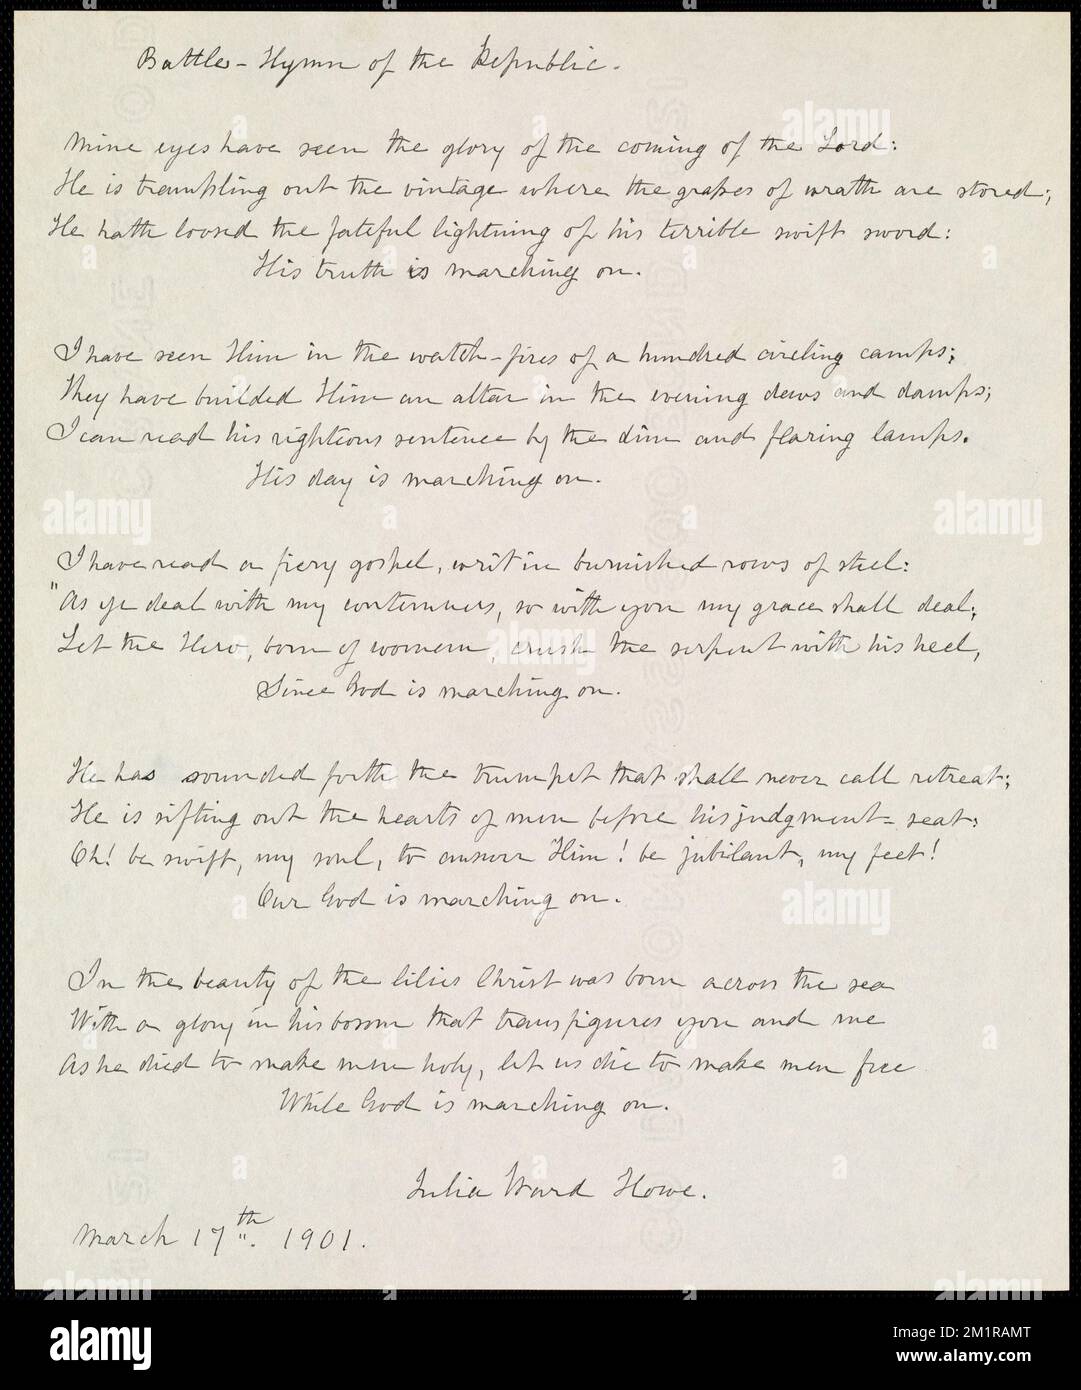 Battle-Hymn of the Republic.
Mine eyes have seen the glory of the coming of the Lord:
He is trampling out the vintage where the grapes of wrath are stored;
He hath loosed the fateful lightning of his terrible swift sword:
His truth is marching on.
I have seen Him in the watch-fires of a hundred circling camps;
They have builded Him an altar in the evening dews and damps;
I can read his righteous sentence by the dim and flaring lamps.
His day is marching on.
I have read a fiery gospel, writ in burnished rows of steel:
"As ye deal with my contemners, so with you my grace shall deal;
Let the Hero, born of woman, crush the serpent with his heel,
Since God is marching on.
He has sounded forth the trumpet that shall never call retreat;
He is sifting out the hearts of men before his judgment-seat:
Oh! be swift, my soul, to answer Him! be jubilant, my feet!
Our God is marching on.
In the beauty of the lilies Christ was born across the sea
With a glory in his bosom that transfigures you and me
As he died to make men holy, let us die to make men free
While God is marching on.
Julia Ward Howe.
March 17th. 1901.
alamy
Image ID: 2M1RAMT
www.alamy.com